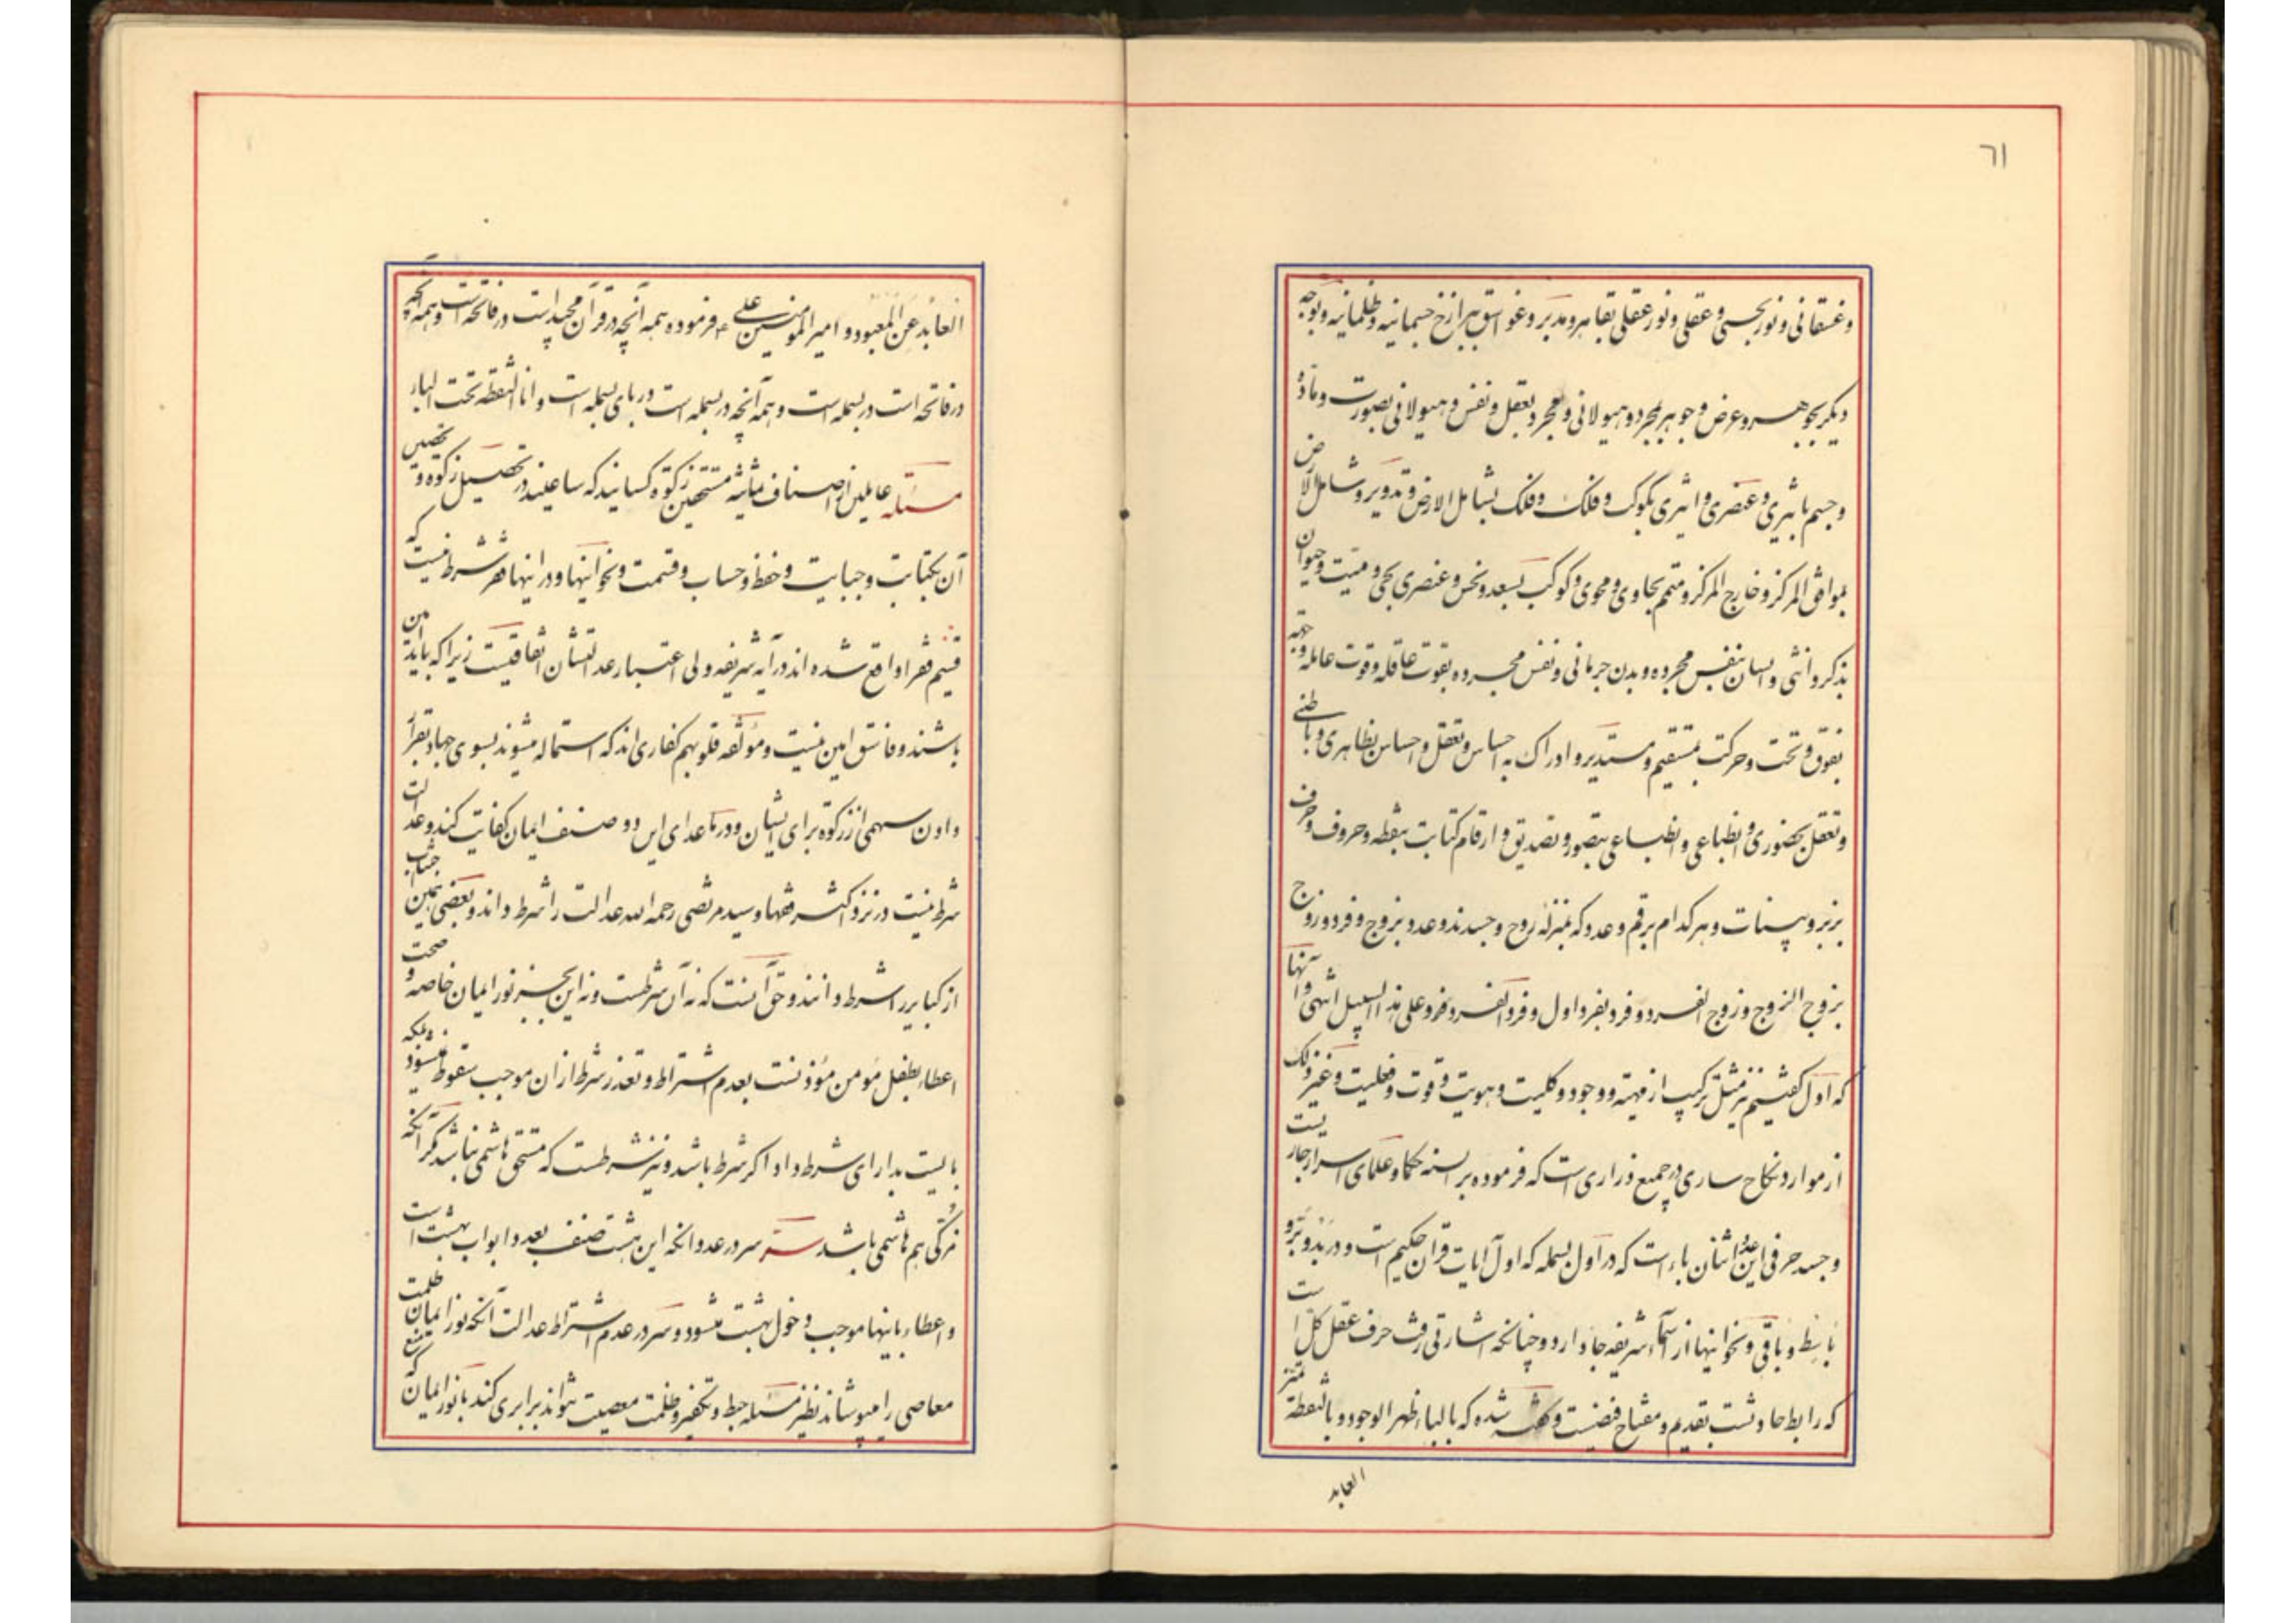 ٦١
وغسقانی و نور بحسی و عقلی و نور عقلی بقاهر و مدبر و غواسق ببرازخ جسمانیه و ظلمانیه و بوجه
دیگر بجوهر و عرض و جوهر بمجرد و هیولانی و مجرد بعقل و نفس و هیولانی بصورت و ماده
و جسم باثیری و عنصری و اثیری بکوکب و فلک و فلک بشامل الارض و تدویر و شامل الارض
بموافق المرکز و خارج المرکز و متمم بحاوی و محوی و کوکب بسعد و نحس و عنصری بحی و میت و حیوان
بذکر و انثی و انسان بنفس مجرده و بدن جرمانی و نفس مجرده بقوت عاقله و قوت عامله و جهة
بفوق و تحت و حرکت بمستقیم و مستدیر و ادراک به احساس و تعقل و احساس بظاهری و باطنی
و تعقل بحضوری و انطباعی و انطباعی بتصور و تصدیق و ارقام کتابت بنقطه و حروف و حرف
بزبر و بینات و هر کدام برقم و عدد که بمنزله روح و جسدند و عدد بزوج و فرد و زوج
بزوج الزوج و زوج الفرد و فرد بفرد اول و فرد الفرد و فرد و علی هذا السبیل انتهی و آنها
که اول گفتیم نیز مثل ترکیب از مهیة و وجود و کلیت و هویت و قوت و فعلیت و غیر ذلک
از موارد نکاح ساری در جمیع ذراری است که فرموده بر السنه حکما و علمای اسرار جاریست
و جسد حرفی این عدد اثنان باء است که در اول بسمله که اول آیات قرآن حکیم است و در بدو و بر و
باسط و باقی و نحو اینها از اسماء شریفه جا دارد و چنانکه اشارتی رفت حرف عقل کل است
که رابط حادثست بقدیم و مفتاح فیضست و گفته شده که بالباء ظهر الوجود و بالنقطة تمیز
العابد
العابد عن المعبود و امیر المومنین علی ع فرموده همه آنچه در قرآن مجید است در فاتحه است و همه آنچه
در فاتحه است در بسمله است و همه آنچه در بسمله است در بای بسمله است و انا النقطه تحت الباء
مسئله عاملین از اصناف ثمانیه مستحقین زکوة کسانیند که ساعیند در تحصیل زکوه و تحصیل
آن بکتابت و جبایت و حفظ و حساب و قسمت و نحو اینها و در اینها فقر شرط نیست که
قسیم فقرا واقع شده اند در آیه شریفه ولی اعتبار عدالتشان اتفاقیست زیرا که باید امین
باشند و فاسق امین نیست و مؤلفه قلوبهم کفاری اند که استماله میشوند بسوی جهاد بقرار
دادن سهمی از زکوة برای ایشان و در ماعدای این دو صنف ایمان کفایت کند و عدالت
شرط نیست در نزد اکثر فقها و سید مرتضی رحمه الله عدالت را شرط داند و بعضی همین اجتناب
از کبایر را شرط دانند و حق آنست که نه آن شرطست و نه این بجز نور ایمان خاصه و صحت
اعطاء بطفل مؤمن مؤذنست بعدم اشتراط و تعذر شرط از ان موجب سقوط نمیشود و بلکه
بایست بدارای شرط داد اگر شرط باشد و نیز شرطست که مستحق هاشمی نباشد مگر آنکه
مزکی هم هاشمی باشد سر سر در عدد انکه این هشت صنف بعدد ابواب بهشت است
و اعطاء باینها موجب دخول بهشت میشود و سر در عدم اشتراط عدالت آنکه نور ایمان ظلمت
معاصی را میپوشاند نظیر مسئله حبط و تکفیر و ظلمت معصیت نتواند برابری کند بانور ایمان که